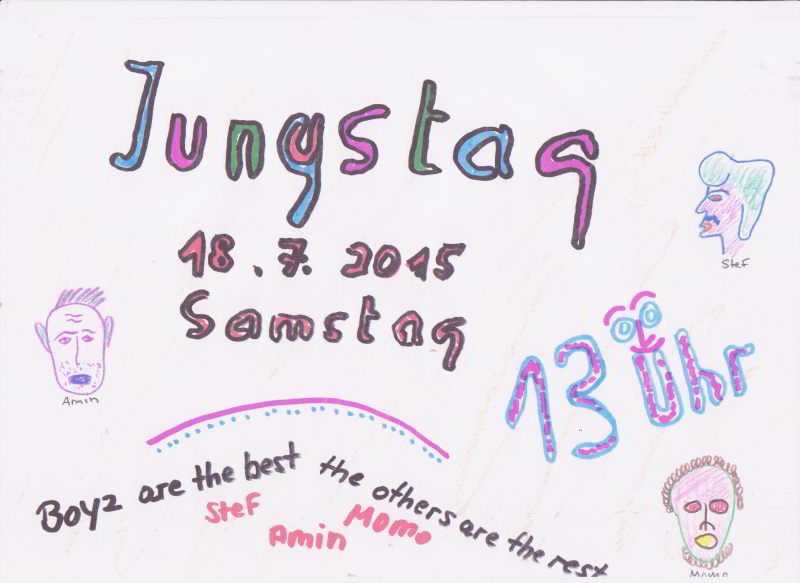 Jungstag
18.7.2015
Samstag
13 Uhr
Stef
Amin
Boyz are the best the others are the rest
Stef
Amin
Momo
Momo